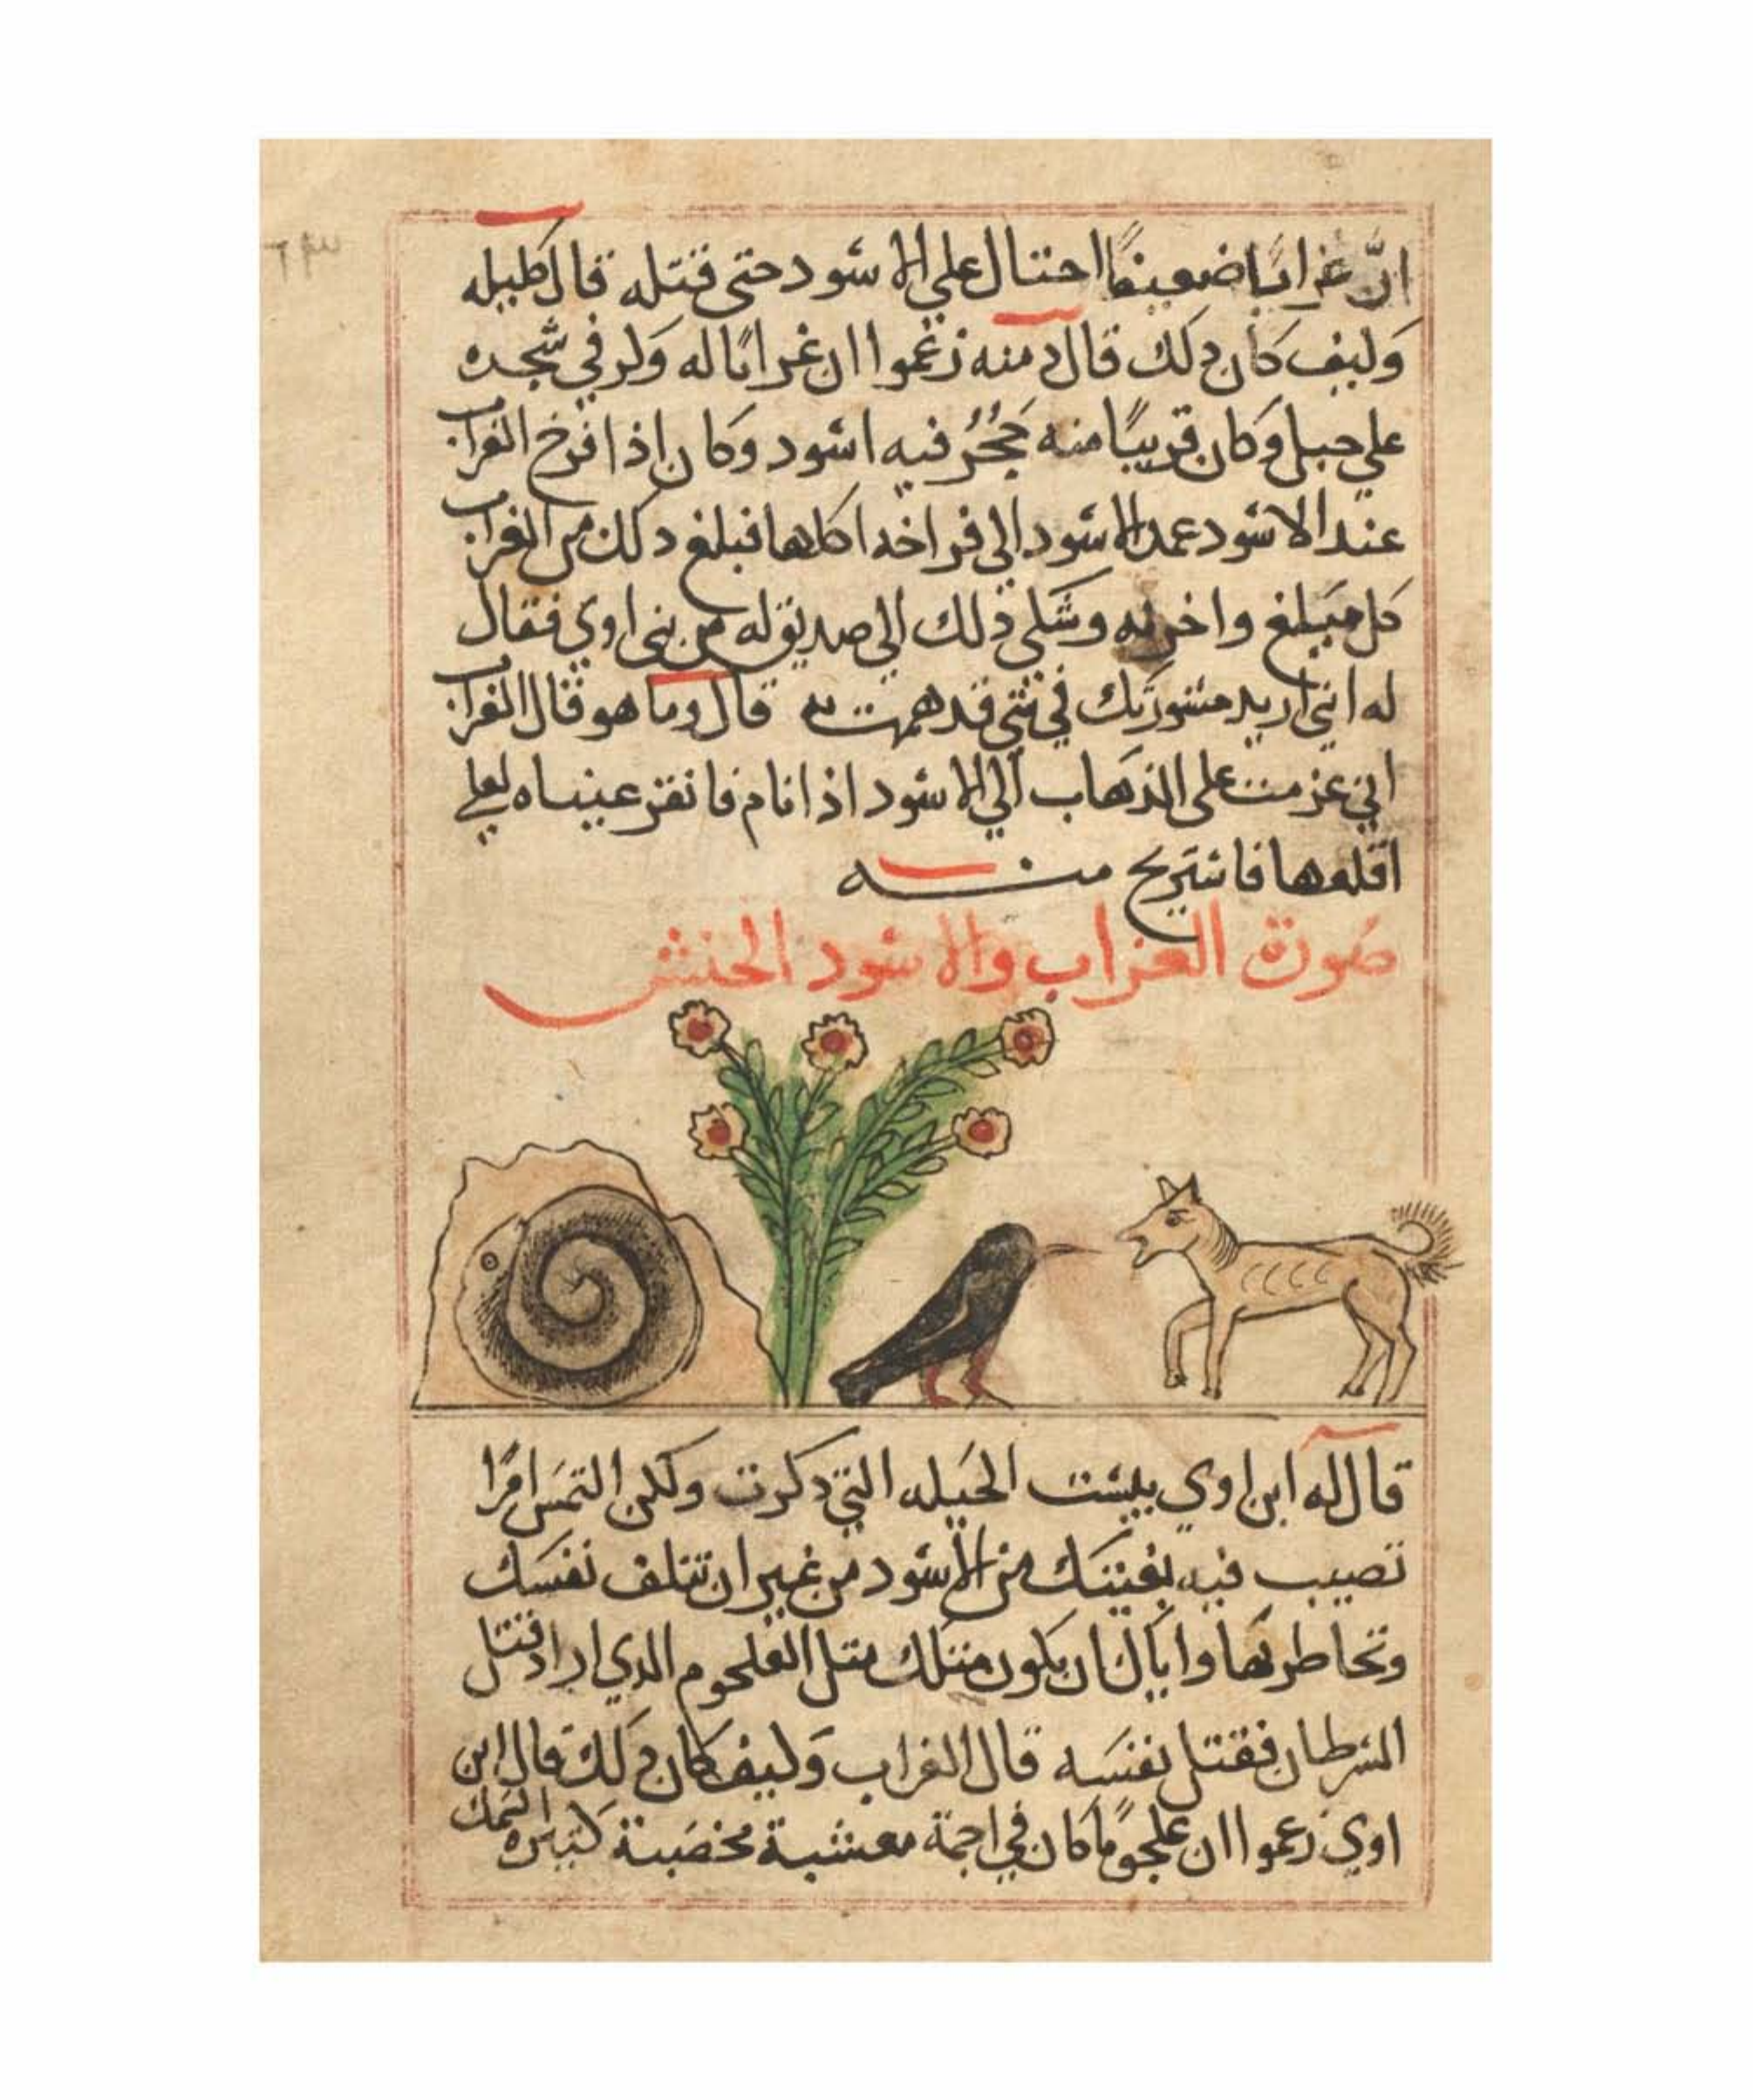 انّ غرابًا ضعيفًا احتال علي الاسود حتي قتله قال كليله
وكيف كان ذلك قال دمنه زعموا ان غرابًا له وكر في شجره
علي جبل وكان قريبًا منه جُحُر فيه اسود وكان اذا افرخ الغراب
عند الاسود عمد الاسود الي فراخه اكلها فبلغ دلك من الغراب
كل مبلغ واحزنه وشكي ذلك الي صديق له من بني اوي فقال
له انني اريد مشورتك في شي قد هممت به قال وما هو قال الغراب
اني عزمت علي الذهاب الي الاسود اذا نام فانقر عيناه لعلي
اقلعها فاستريح منه
صورة الغراب والاسود الحنش
قال له ابن اوي بيست الحيله التي دكرت ولكن التمس امرًا
تصيب فيه بغيتك من الاسود من غير ان تتلف نفسك
وتخاطر بها واياك ان يكون متلك متل العلجوم الدي اراد قتل
السرطان فقتل نفسه قال الغراب وكيف كان ذلك قال ابن
اوي زعموا ان علجومًا كان في اجمة معشبة مخصبة كتيرة السمك